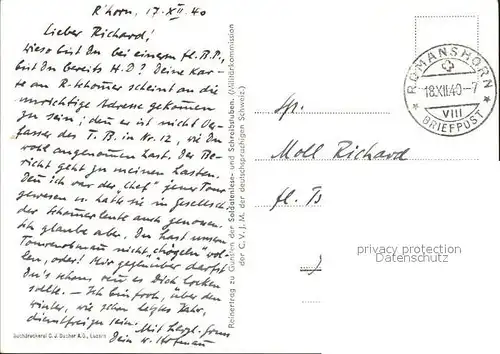 R'horn, 17.XII.40
Lieber Richard!
wieso bist Du bei einem fl. B.P.,
bist Du bereits H.D? Deine Kar-
te an R. scheint an die
unrichtige Adresse gekommen
zu sein; denn er ist nicht Ver-
fasser des T.B. in Nr. 12, wie Du
wohl angenommen hast. Der Be-
richt geht zu meinen Lasten.
Den ich war der "Chef" jener Tour
gewesen u. hatte sie in Gesellsch.
der leute auch genommen.
Ich glaube aber, Du hast unsern
Tourenobmann nicht "högeln" wol-
len, oder! Mir gegenüber darfst
Du's schon, wenn es Dich locken
sollte. – Ich bin froh, über den
Winter, wie schon letztes Jahr,
dienstfrei zu sein.
Mit herzl. Gruss
Dein W. Hofmann
Buchdruckerei C. J. Bucher A.G., Luzern
Reinertrag zu Gunsten der Soldatenlese- und Schreibstuben. (Militärkommission
der C.V.J.M. der deutschsprachigen Schweiz.)
ROMANSHORN
18.XII.40–7
VIII
BRIEFPOST
Hr.
Moll Richard
fl. B
privacy protection
Datenschutz